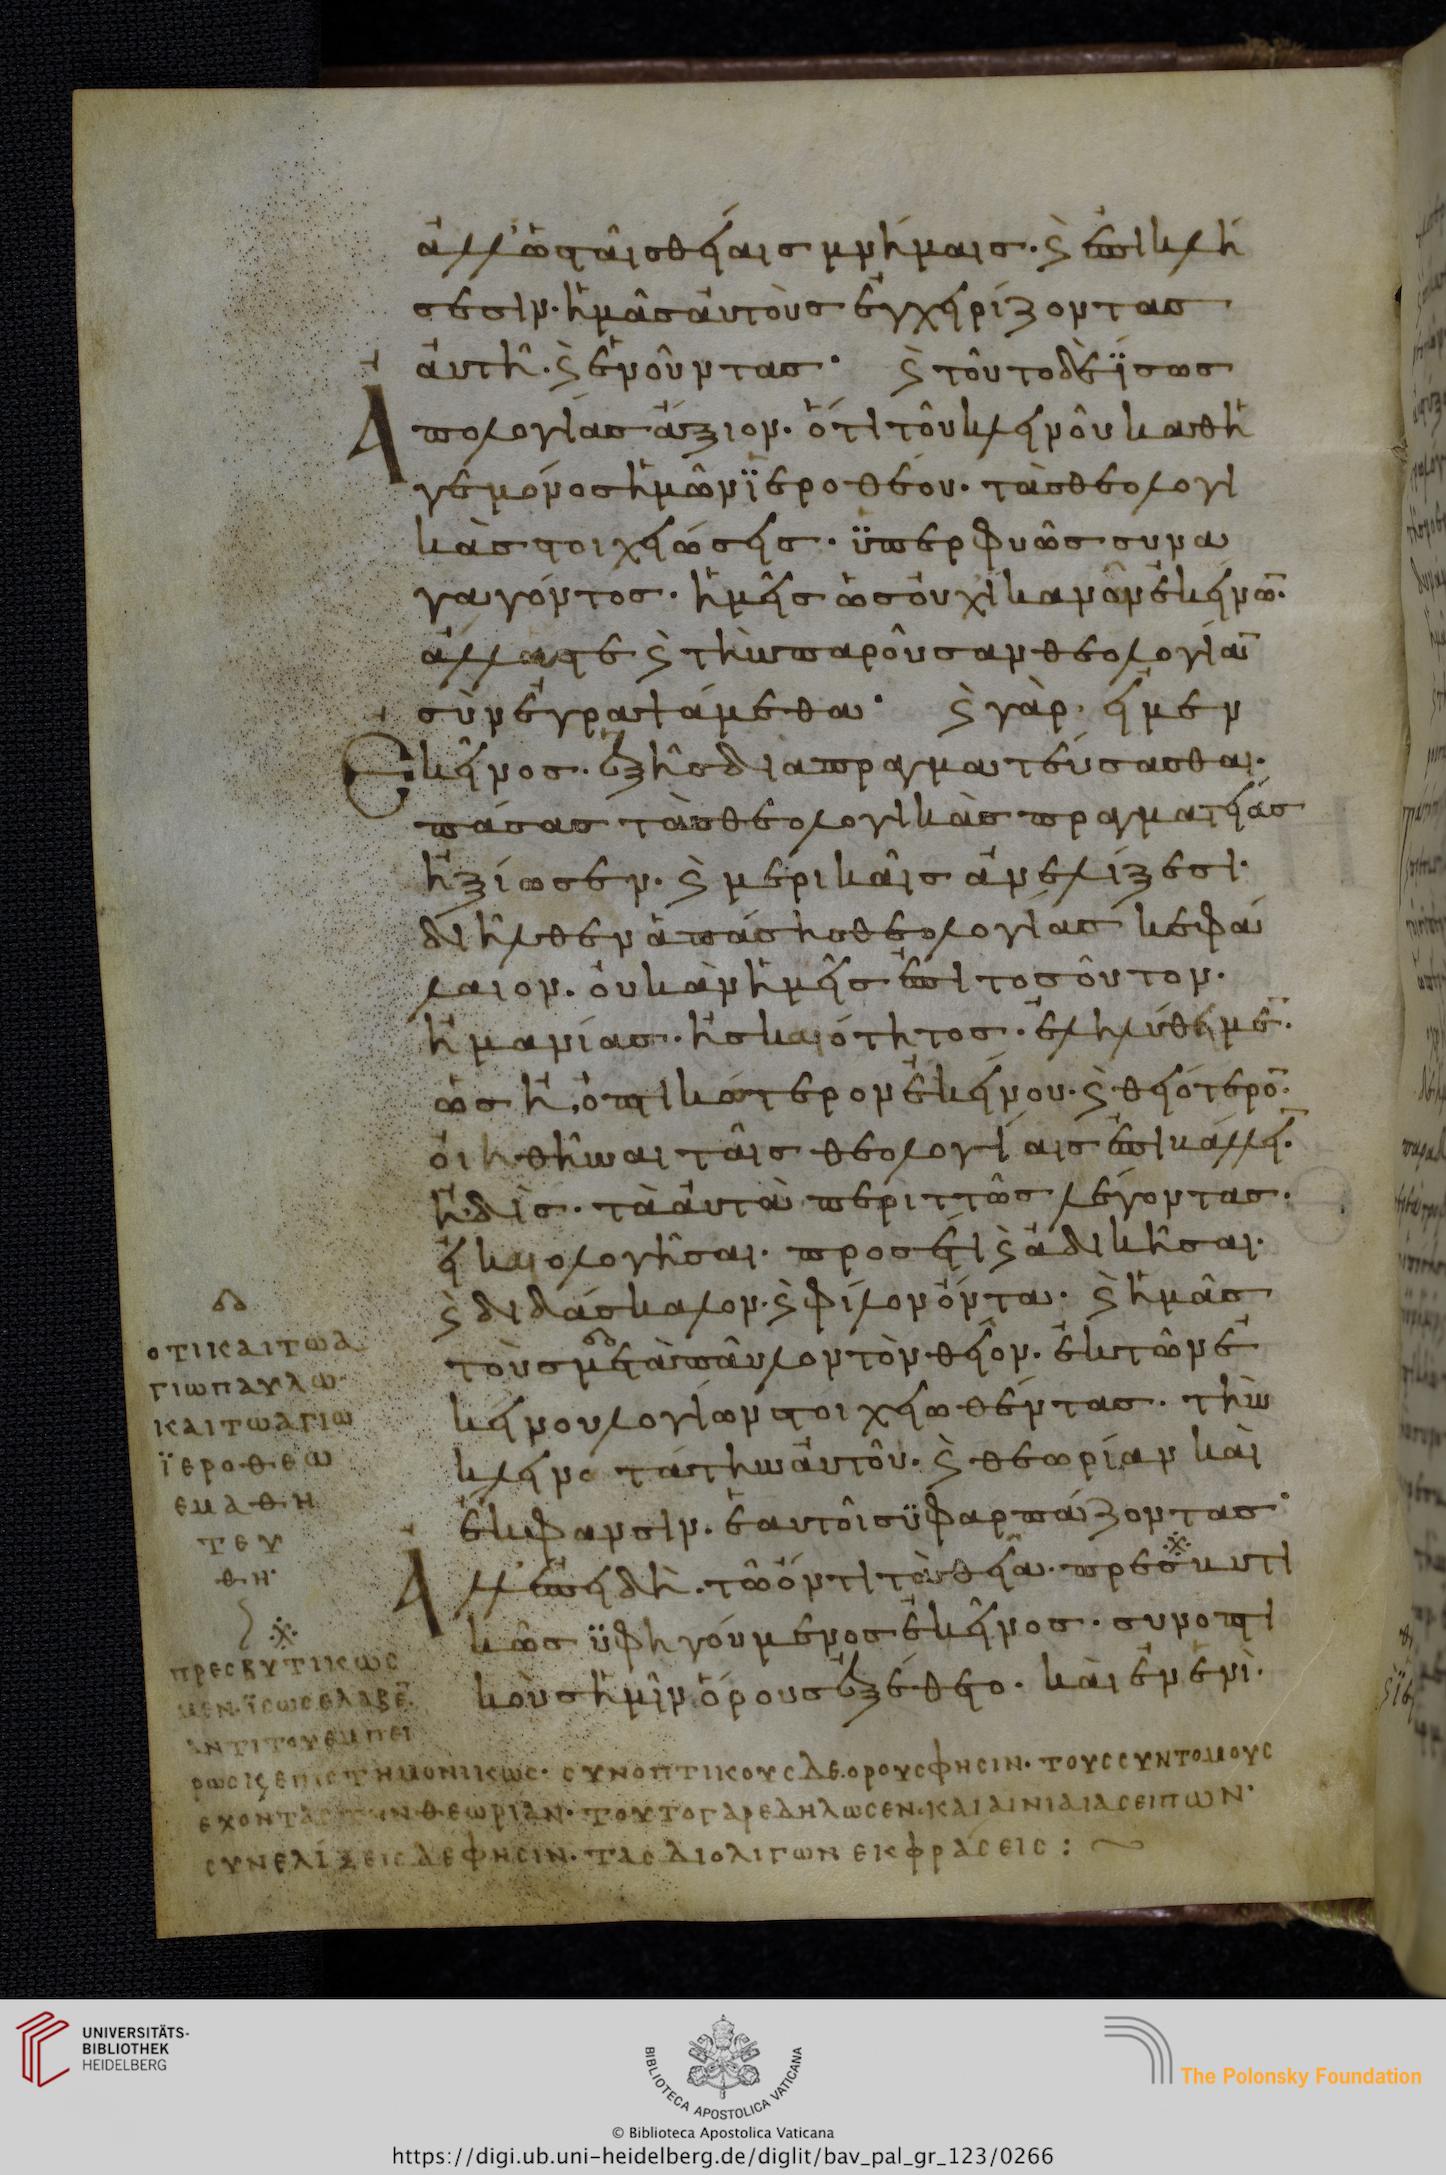 ἀλλ' ὡς ταῖς θείαις μνήμαις· καὶ ἐπικλή
σεσιν· ἡμᾶς αὐτοὺς ἐγχειρίζοντας
αὐτῆ· καὶ ἑνοῦντας· καὶ τοῦτο δὲ ἴσως
Ἀπολογίας ἄξιον· ὅτι τοῦ κλεινοῦ καθη
γεμόνος ἡμῶν ϊεροθέου· τὰς θεολογι
κὰς στοιχειώσεις· ϋπερφυῶς συνα
γαγόντος· ἡμεῖς ὡς οὐχ ἱκανῶν ἐκείνων·
ἄλλας τε καὶ τὴν παροῦσαν θεολογίαν
συνεγραψάμεθα· καὶ γὰρ· εἰ μὲν
Ἐκεῖνος· ἑξῆς διαπραγματεύσασθαι·
πάσας τὰς θεολογικὰς πραγματείας
ἠξίωσεν· καὶ μερικαῖς ἀνελίξεσι·
διῆλθεν ἁπάσης θεολογίας κεφά
λαιον· οὐκ ἂν ἡμεῖς ἐπὶ τοσοῦτον·
ἢ μανίας· ἢ σκαιότητος· ἐληλύθειμεν·
ὡς ἢ ὀπτικώτερον ἐκείνου· καὶ θειότερον·
οἰηθῆναι ταῖς θεολογίαις ἐπιβάλλειν·
ἢ δὶς· τὰ αὐτὰ περιττῶς λέγοντας·
εἰκαιολογῆσαι· προσέτι καὶ ἀδικῆσαι·
καὶ διδάσκαλον· καὶ φίλον ὄντα· καὶ ἡμᾶς
τοὺς μετὰ παῦλον τὸν θεῖον· ἐκ τῶν ἐ
κείνου λογίων στοιχειωθέντας· τὴν
κλεινοτάτην αὐτοῦ· καὶ θεωρίαν καὶ
ἔκφανσιν· ἑαυτοῖς ϋφαρπάζοντας·
Ἀλλ' ἐπειδὴ· τῶ ὄντι τὰ θεῖα· πρεσβυτι
κῶς ϋφηγούμενος ἐκεῖνος· συνοπτι
κοὺς ἡμῖν ὅρους ἐξέθετο· καὶ ἐν ἑνὶ·
ΟΤΙ ΚΑΙ ΤΩ Α
ΓΙΩ ΠΑΥΛΩ·
ΚΑΙ ΤΩ ΑΓΙΩ
ΪΕΡΟΘΕΩ
ΕΜΑΘΗ
ΤΕΥ
ΘΗ·
ΠΡΕCΒΥΤΙΚΩC
ΜΕΝ· ΪCΩC ΕΛΑΒΕΝ·
ΑΝΤΙ ΤΟΥ ΕΜΠΕΙ
ΡΩC ΚΑΙ ΕΠΙCΤΗΜΟΝΙΚΩC· CΥΝΟΠΤΙΚΟΥC ΔΕ ΟΡΟΥC ΦΗCΙΝ· ΤΟΥC CΥΝΤΟΜΟΥC
ΕΧΟΝΤΑC ΤΗΝ ΘΕΩΡΙΑΝ· ΤΟΥΤΟ ΓΑΡ ΕΔΗΛΩCΕΝ· ΚΑΙ ΑΙΝΙΑΙΑC ΕΙΠΩΝ·
CΥΝΕΛΙΞΕΙC ΔΕ ΦΗCΙΝ· ΤΑC ΔΙ ΟΛΙΓΩΝ ΕΚΦΡΑCΕΙC :
UNIVERSITÄTS-
BIBLIOTHEK
HEIDELBERG
BIBLIOTECA APOSTOLICA VATICANA
The Polonsky Foundation
© Biblioteca Apostolica Vaticana
https://digi.ub.uni-heidelberg.de/diglit/bav_pal_gr_123/0266